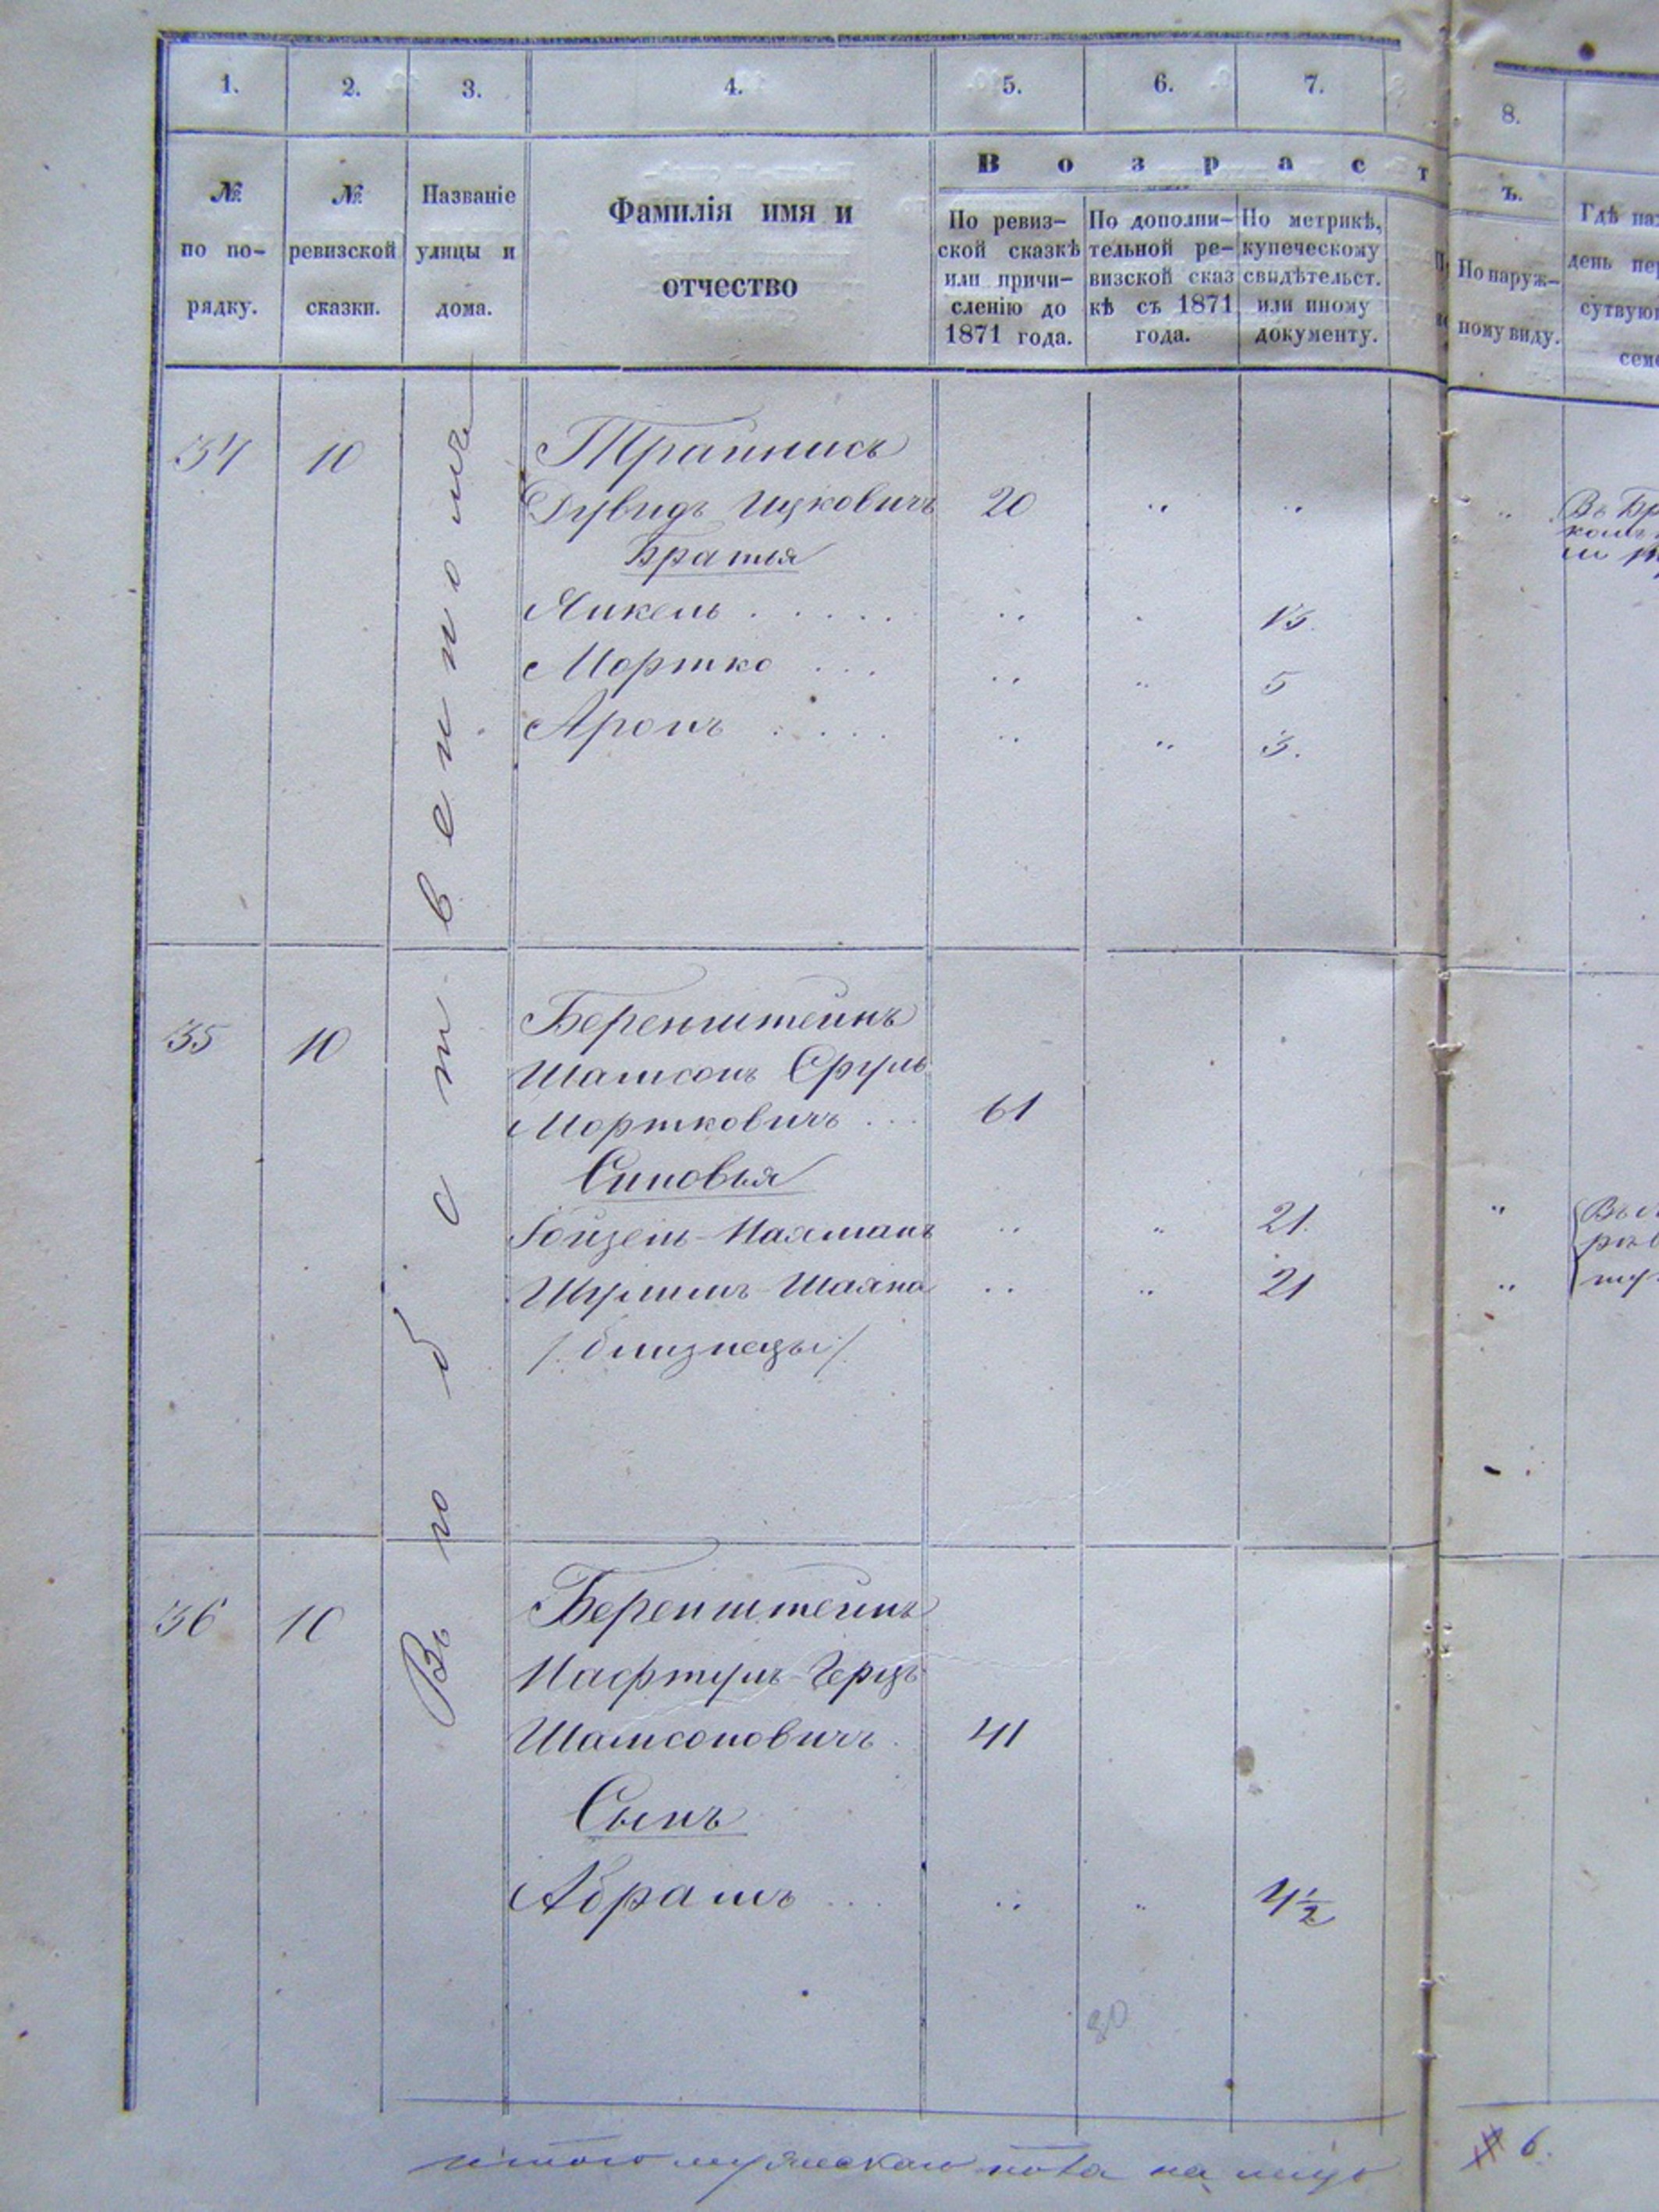 1.
2.
3.
4.
5.
6.
7.
8.
№
по по-
рядку.
№
ревизской
сказки.
Названіе
улицы и
дома.
Фамилія имя и
отчество
Возраст
ъ.
По ревиз-
ской сказкѣ
или причи-
сленію до
1871 года.
По дополни-
тельной ре-
визской сказ
кѣ съ 1871
года.
По метрикѣ,
купеческому
свидѣтельст.
или иному
документу.
По наруж-
ному виду.
Гдѣ на
день пер
сутвую
сем
Въ собственномъ
34 10 Трайнисъ
Дувидъ Ицковичъ 20 " " "
Братья
Янкель . . . . . " " 13.
Мортко . . . " " 5
Аронъ . . . . " " 3.
Въ Бр
35 10 Беренштейнъ
Шамсонъ Сруль
Мортковичъ . . . 61
Синовья
Гойзеш-Нахманъ " " 21. "
Шулимъ-Шаяна " " 21 "
/близнецы/
36 10 Беренштейнъ
Нафтулъ-Герцъ
Шамсоновичъ . 41
Сынъ
Абрамъ . . . " " 4½
80
итого мужескаго пола на лицо
6.